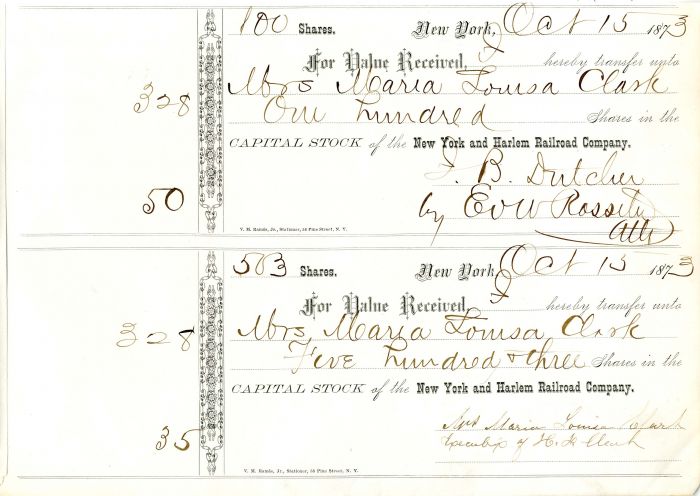 100 Shares. New York, Oct 15 1873
For Value Received, I hereby transfer unto
328 Mrs Maria Louisa Clark
One hundred Shares in the
CAPITAL STOCK of the New York and Harlem Railroad Company.
J. B. Dutcher
50 by EVW Rossiter
Atty
V. M. Rands, Jr., Stationer, 58 Pine Street, N. Y.
503 Shares. New York, Oct 15 1873
For Value Received, I hereby transfer unto
328 Mrs Maria Louisa Clark
Five hundred & three Shares in the
CAPITAL STOCK of the New York and Harlem Railroad Company.
Mrs Maria Louisa Clark
35 Executrix of H. Clark
V. M. Rands, Jr., Stationer, 58 Pine Street, N. Y.